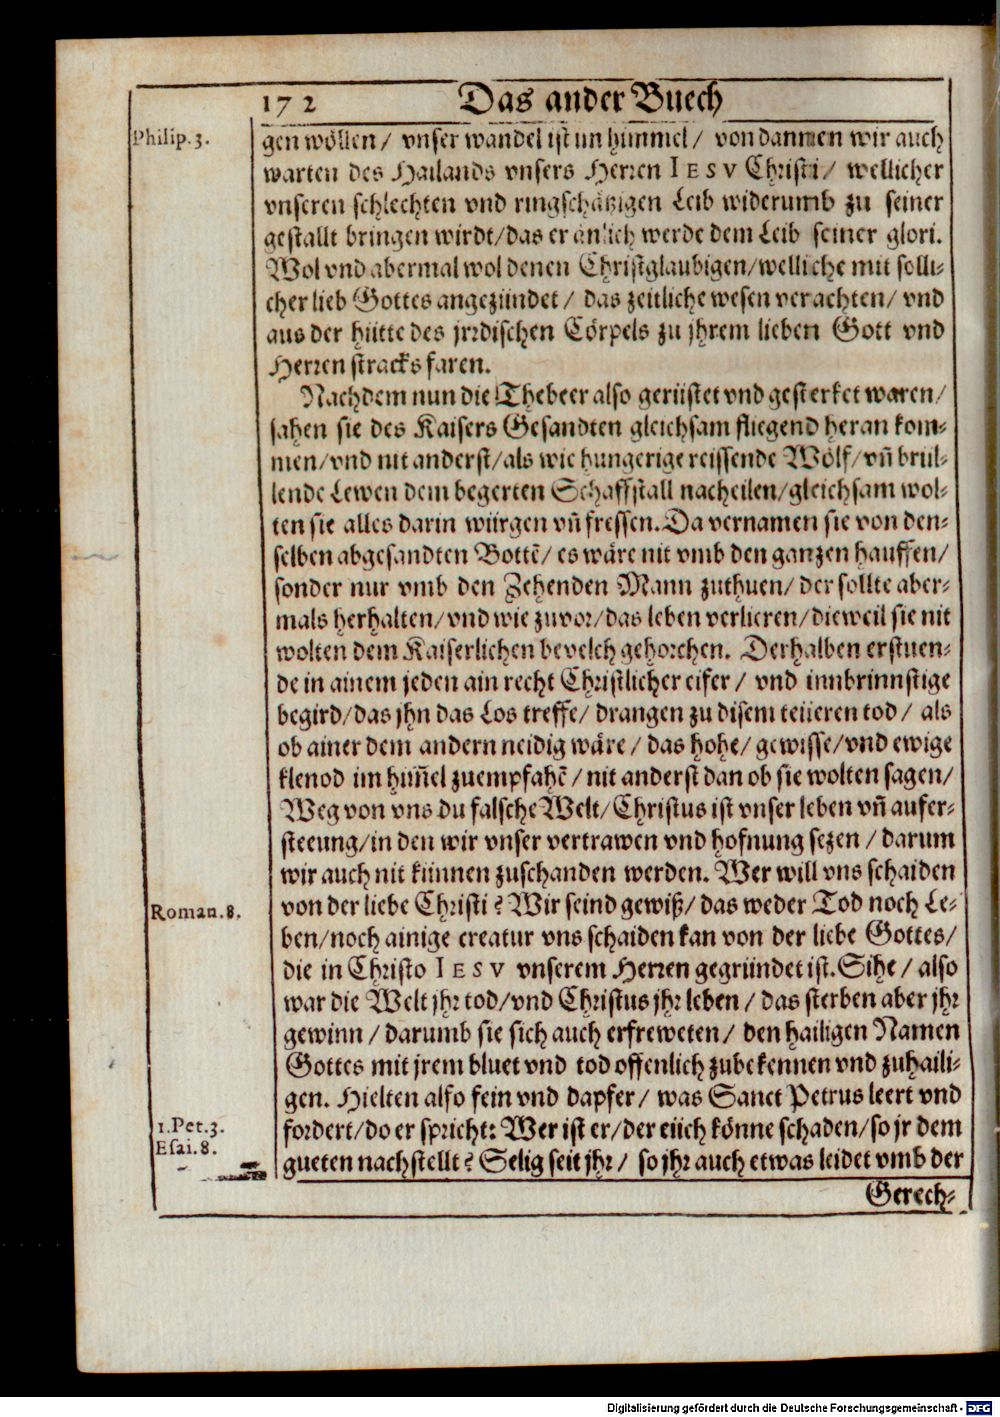 172 Das ander Buech
Philip. 3.
gen wöllen / vnser wandel ist im himmel / von dannen wir auch
warten des Hailands vnsers Herren IESV Christi / wellicher
vnseren schlechten vnd ringschätzigen Leib widerumb zu seiner
gestallt bringen wirdt / das er änlich werde dem Leib seiner glori.
Wol vnd abermal wol denen Christglaubigen / welliche mit solli-
cher lieb Gottes angezündet / das zeitliche wesen verachten / vnd
aus der hütte des jrrdischen Cörpels zu jhrem lieben Gott vnd
Herren stracks faren.
Nachdem nun die Thebeer also gerüstet vnd gesterket waren /
sahen sie des Kaisers Gesandten gleichsam fliegend heran kom-
men / vnd nit anderst / als wie hungerige reissende Wölf / vn̄ brül-
lende Lewen dem begerten Schaffstall nacheilen / gleichsam wol-
ten sie alles darin würgen vn̄ fressen. Da vernamen sie von den-
selben abgesandten Bottē / es wäre nit vmb den ganzen hauffen /
sonder nur vmb den Zehenden Mann zuthuen / der sollte aber-
mals herhalten / vnd wie zuvor / das leben verlieren / dieweil sie nit
wolten dem Kaiserlichen bevelch gehorchen. Derhalben erstuen-
de in ainem jeden ain recht Christlicher eifer / vnd innbrinnstige
begird / das jhn das Los treffe / drangen zu disem teüeren tod / als
ob ainer dem andern neidig wäre / das hohe / gewisse / vnd ewige
klenod im him̄el zuempfahē / nit anderst dan ob sie wolten sagen /
Weg von vns du falsche Welt / Christus ist vnser leben vn̄ aufer-
steeung / in den wir vnser vertrawen vnd hofnung sezen / darum
wir auch nit künnen zuschanden werden. Wer will vns schaiden
Roman. 8.
von der liebe Christi? Wir seind gewiß / das weder Tod noch Le-
ben / noch ainige creatur vns schaiden kan von der liebe Gottes /
die in Christo IESV vnserem Herren gegründet ist. Sihe / also
war die Welt jhr tod / vnd Christus jhr leben / das sterben aber jhr
gewinn / darumb sie sich auch erfreweten / den hailigen Namen
Gottes mit jrem bluet vnd tod offenlich zubekennen vnd zuhaili-
gen. Hielten also fein vnd dapfer / was Sanct Petrus leert vnd
1. Pet. 3.
fordert / do er spricht: Wer ist er / der eüch könne schaden / so jr dem
Esai. 8.
gueten nachstellt? Selig seit jhr / so jhr auch etwas leidet vmb der
Gerech-
Digitalisierung gefördert durch die Deutsche Forschungsgemeinschaft - DFG